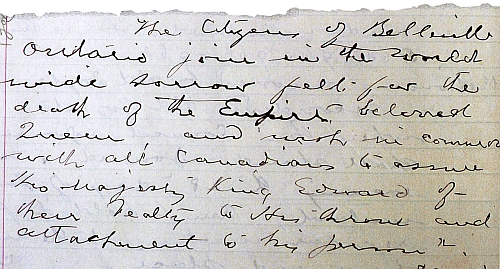 The Citizens of Belleville
Ontario join in the world
wide sorrow felt for the
death of the Empire's beloved
Queen and wish in common
with all Canadians to assure
his majesty King Edward of
their fealty to His throne and
attachment to his person".